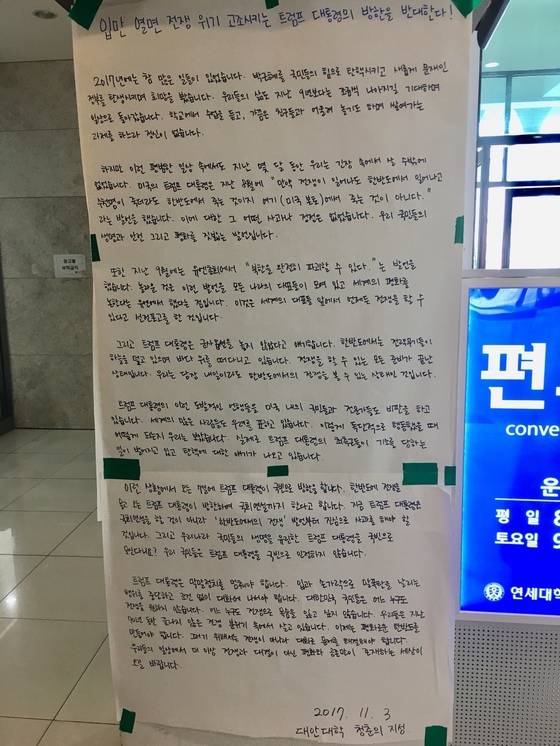 입만 열면 전쟁 위기 고조시키는 트럼프 대통령의 방한을 반대한다!
2017년에는 참 많은 일들이 있었습니다. 박근혜를 국민들의 힘으로 탄핵시키고 새롭게 문재인
정부를 탄생시키며 희망을 봤습니다. 우리들의 삶도 지난 9년보다는 조금씩 나아지길 기대하며
일상으로 돌아갔습니다. 학교에서 수업을 듣고, 가끔은 친구들과 어울려 놀기도 하며 쌓여가는
과제를 하느라 정신이 없습니다.
하지만 이런 평범한 일상 속에서도 지난 몇 달 동안 우리는 긴장 속에서 살 수밖에
없었습니다. 미국의 트럼프 대통령은 지난 8월에 "만약 전쟁이 일어나도 한반도에서 일어나고
수천명이 죽더라도 한반도에서 죽는 것이지 여기(미국 본토)에서 죽는 것이 아니다."
라는 발언을 했습니다. 이에 대한 그 어떤 사과나 정정은 없었습니다. 우리 국민들의
생명과 안전 그리고 평화를 짓밟는 발언입니다.
또한 지난 9월에는 유엔총회에서 "북한을 완전히 파괴할 수 있다."는 발언을
했습니다. 놀라운 것은 이런 발언을 모든 나라의 대표들이 모여 있고 세계의 평화를
논한다는 유엔에서 했다는 것입니다. 이것은 세계의 대표들 앞에서 언제든 전쟁을 할 수
있다고 선전포고를 한 것입니다.
그리고 트럼프 대통령은 군사옵션을 놓지 않았다고 얘기합니다. 한반도에서는 전략무기들이
하늘을 덮고 있으며 바다 위를 떠다니고 있습니다. 전쟁을 할 수 있는 모든 준비가 끝난
상태입니다. 우리는 당장 내일이라도 한반도에서의 전쟁을 볼 수 있는 상태인 것입니다.
트럼프 대통령의 이런 도발적인 언행들을 미국 내의 국민들과 전문가들도 비판을 하고
있습니다. 세계의 많은 사람들도 우려를 표하고 있습니다. 이렇게 독단적으로 행동했을 때
어떻게 되는지 우리는 봤습니다. 실제로 트럼프 대통령의 최측근들이 기소를 당하는
일이 벌어지고 있고 탄핵에 대한 얘기가 나오고 있습니다.
이런 상황에서 오는 7일에 트럼프 대통령이 국빈으로 방한을 합니다. 한반도에 전쟁을
트럼프 대통령이 방한하여 국회연설까지 한다고 합니다. 지금 트럼프 대통령은
국회연설을 할 것이 아니라 '한반도에서의 전쟁' 발언부터 진심으로 사과를 해야 할
것입니다. 그리고 우리나라 국민들의 생명을 위협한 트럼프 대통령을 국빈으로
우리 국민들은 트럼프 대통령을 국빈으로 인정하지 않습니다.
트럼프 대통령은 막말정치를 멈춰야 합니다. 입과 손가락으로 막말탄을 날리는
행위를 중단하고 조건 없이 대화에 나서야 합니다. 대한민국 국민들은 어느 누구도
전쟁을 원하지 않습니다. 어느 누구도 전쟁으로 목숨을 잃고 싶지 않습니다. 우리들은 지난
끝나지 않는 전쟁 분위기 속에서 살고 있습니다. 이제는 평화로운 한반도를
만들어야 합니다. 그러기 위해서는 전쟁이 아니라 대화로 문제를 해결해야 합니다.
우리들의 일상에서 더 이상 전쟁과 대결이 아닌 평화와 공존만이 존재하는 세상이
오길 바랍니다.
2017. 11. 3
대안대학 청춘의 지성
편
conve
운
평 일 8
토요일 9
연세대학